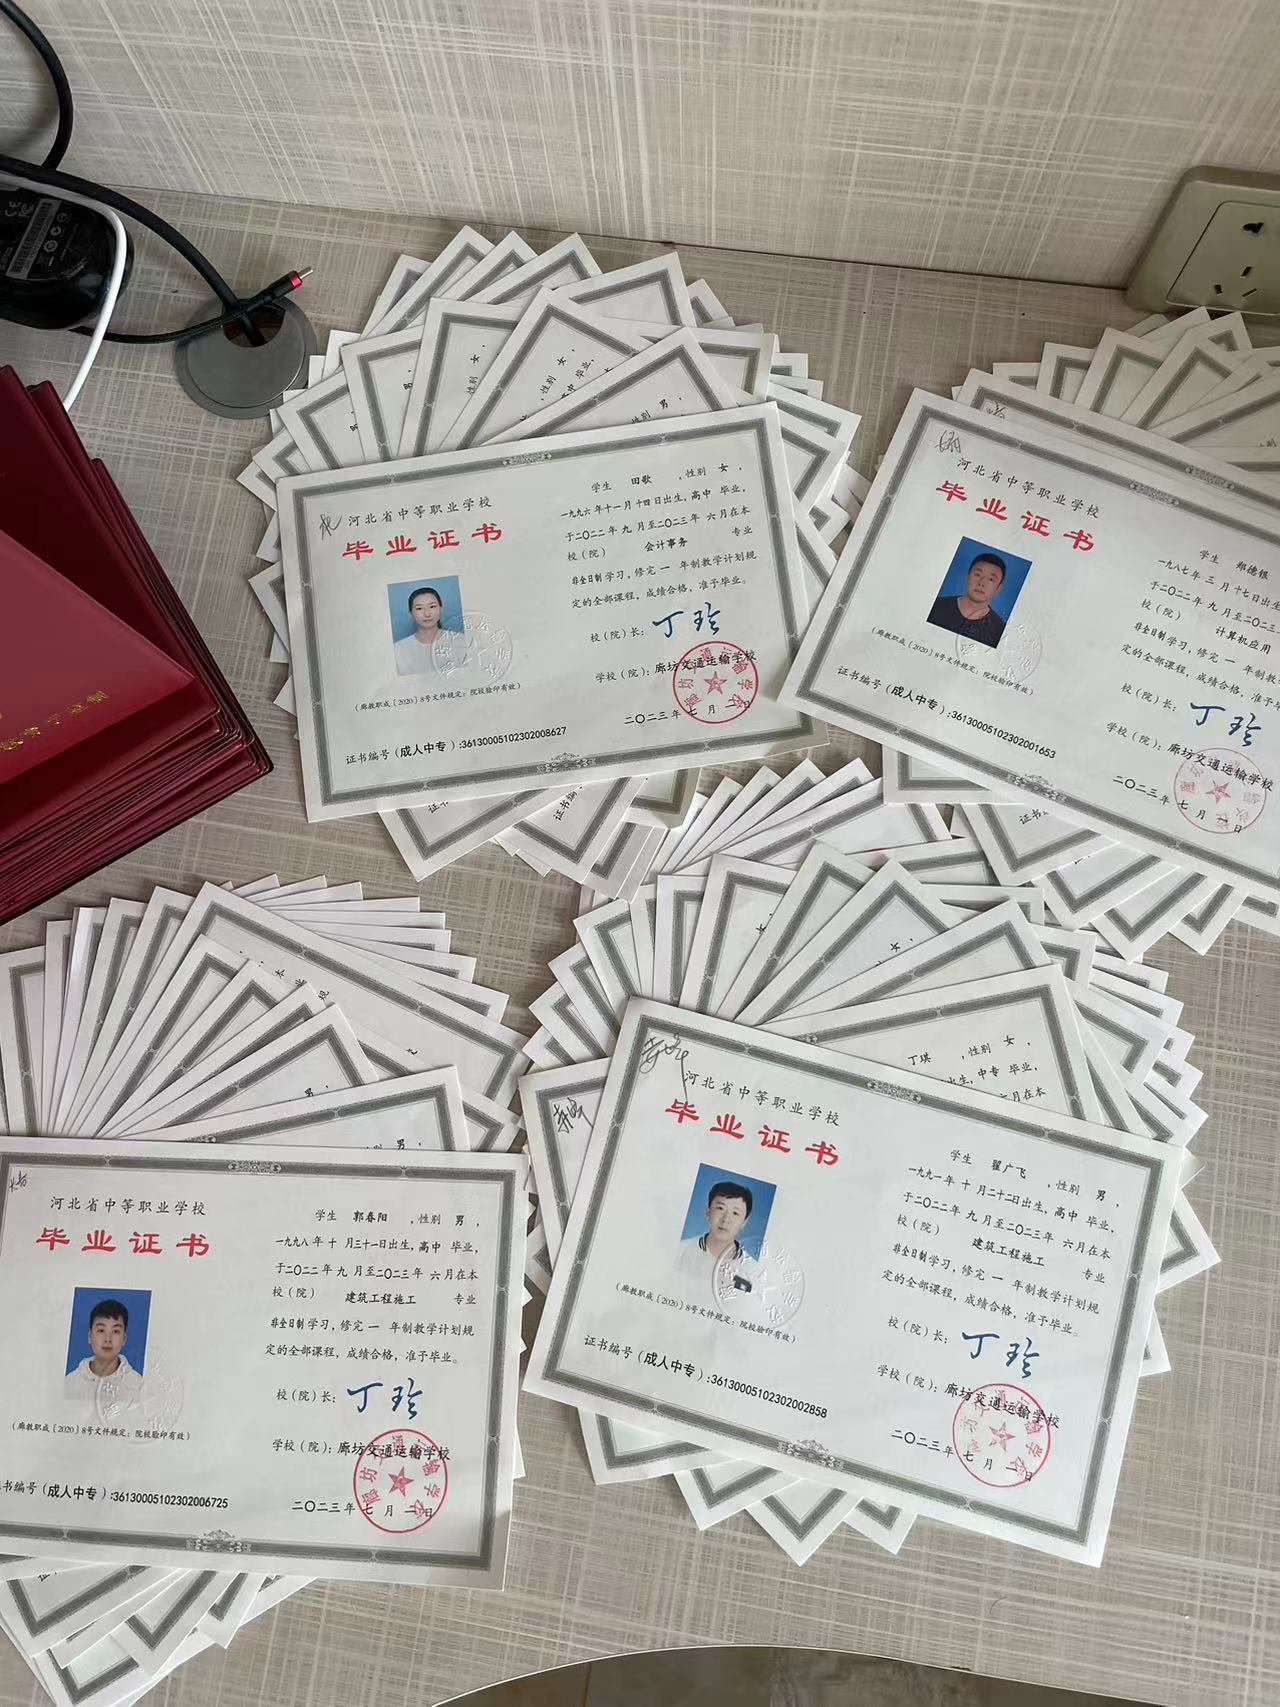 河北省中等职业学校
毕业证书
(廊教职成〔2020〕8号文件规定:院校验印有效)
证书编号(成人中专):36130005102302008627
学生 田歌 ,性别 女,
一九九六年十一月十四日出生,高中 毕业,
于二〇二二年九月至二〇二三年六月在本
校(院) 会计事务 专业
非全日制学习,修完一年制教学计划规
定的全部课程,成绩合格,准予毕业。
校(院)长: 丁珍
学校(院):廊坊交通运输学校
二〇二三年七月一日
河北省中等职业学校
毕业证书
(廊教职成〔2020〕8号文件规定:院校验印有效)
证书编号(成人中专):36130005102302001653
学生 郑德银
一九八七年三月十七日出生
于二〇二二年九月至二〇二三
校(院) 计算机应用
非全日制学习,修完一年制教学计
定的全部课程,成绩合格,准予
校(院)长: 丁珍
学校(院):廊坊交通运输学校
二〇二三年七月一日
河北省中等职业学校
毕业证书
(廊教职成〔2020〕8号文件规定:院校验印有效)
书编号(成人中专):36130005102302006725
学生 郭春阳 ,性别 男,
一九九八年十月三十一日出生,高中 毕业,
于二〇二二年九月至二〇二三年六月在本
校(院) 建筑工程施工 专业
非全日制学习,修完一年制教学计划规
定的全部课程,成绩合格,准予毕业。
校(院)长: 丁珍
学校(院):廊坊交通运输学校
二〇二三年七月一日
丁琪 ,性别 女,
出生,中专 毕业,
河北省中等职业学校
毕业证书
(廊教职成〔2020〕8号文件规定:院校验印有效)
证书编号(成人中专):36130005102302002858
学生 瞿广飞 ,性别 男,
一九九一年十月二十二日出生,高中 毕业,
于二〇二二年九月至二〇二三年六月在本
校(院) 建筑工程施工 专业
非全日制学习,修完一年制教学计划规
定的全部课程,成绩合格,准予毕业。
校(院)长: 丁珍
学校(院):廊坊交通运输学校
二〇二三年七月一日